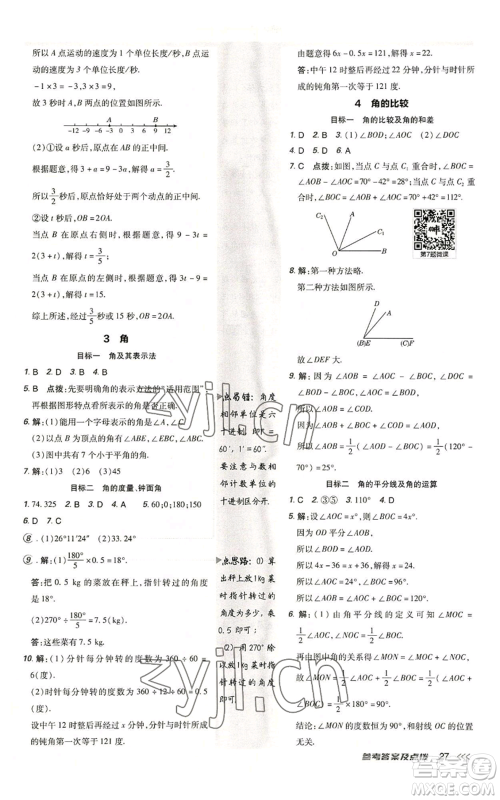 所以 A 点运动的速度为 1 个单位长度/秒, B 点运动的速度为 3 个单位长度/秒.
-1×3=-3,3×3=9,
故 3 秒时 A,B 两点的位置如图所示.
A B
-12 -9 -6 -3 0 3 6 9 12
(2)①设 a 秒后,原点恰好处在两个动点的正中间.
根据题意,得 3+a=9-3a.解得 a=3/2.
所以 3/2 秒后,原点恰好处于两个动点的正中间.
②设 t 秒时,OB=2OA.
当点 B 在原点右侧时,根据题意,得 9-3t=2(3+t),解得 t=3/5.
当点 B 在原点的左侧时,根据题意,得 3t-9=2(3+t),解得 t=15.
综上所述,当 3/5 秒或 15 秒时,OB=2OA.
3 角
目标一 角及其表示法
1. D 2. B 3. C 4. B
5. B 点拨:要先明确角的表示方法的“适用范围”,再根据图形特点看所表示的角是否正确.
6. 解:(1)能用一个字母表示的角为∠A,∠C.
(2)以 B 为顶点的角为∠ABE,∠ABC,∠EBC.
(3)图中共有 7 个小于平角的角.
7. 解:(1)3 (2)6 (3)45
目标二 角的度量、钟面角
1. 74.325 2. B 3. D 4. A 5. 60;0;180;150
6. D 7. C
8. 解:(1)26°11′24″ (2)33.24°
9. 解:(1)180°/5×0.5=18°.
答:把 0.5 kg 的菜放在秤上,指针转过 18°.
(2)270°÷180°/5=7.5(kg).
答:这些菜有 7.5 kg.
10. 解:(1)分针每分钟转的度数为 360÷60=6(度),时针每分钟转的度数为 360÷12÷60=0.5(度).
(2)设中午 12 时整后再经过 x 分钟,分针与时针所成的钝角第一次等于 121 度.
点易错:角度相邻单位是六十进制,即1°=60′,1′=60″.要注意与数相邻计数单位的十进制区分开.
点思路:(1)算出秤上放1kg菜时指针转过的角度为多少,乘0.5即可;(2)用270°除以放1kg菜时指针转过的角度即可.
由题意得 6x-0.5x=121,解得 x=22.
答:中午 12 时整后再经过 22 分钟,分针与时针所成的钝角第一次等于 121 度.
4 角的比较
目标一 角的比较及角的和差
1. D 2. B 3. (1)∠BOD;∠AOC (2)∠BOC;∠AOD
4. B 5. D 6. A
7. C 点拨:当点 C 与点 C₁ 重合时,∠BOC=∠AOB-∠AOC=70°-42°=28°;当点 C 与点 C₂ 重合时,∠BOC=∠AOB+∠AOC=70°+42°=112°.
C₂ B C₁ O A
第7题微课
8. 解:第一种方法略.
第二种方法如图所示.
D A (B)E F(C)
9. 解:因为∠COD=∠AOB,
所以∠COD+∠BOC=∠AOB+∠BOC,
即∠BOD=∠AOC.
所以∠AOB=1/2(∠AOD-∠BOC)=1/2×(120°-70°)=25°.
目标二 角的平分线及角的运算
1. D 2. ③⑤ 3. 110° 4. D
5. 解:设∠AOC=4x,则∠BOC=5x.
因为 OD 平分∠AOB,
所以∠AOD=1/2∠AOB=9/2x.
又因为∠COD=∠AOD-∠AOC,
所以 9/2x-4x=36°,解得 x=72°.
6. 解:(1)由角平分线的定义可知∠MOC=1/2∠BOC,∠NOC=1/2∠AOC.
由图中角的关系得∠MON=∠MOC-∠NOC=1/2∠BOC-1/2∠AOC=1/2∠AOB=45°,
故∠MON 的度数为 45°.
(2)∠MON 的度数不变化,射线 OC 在∠AOB 内部转动时,∠MON=∠MOC+∠NOC=
参考答案及点拨 27
zyjl.cn
zyjl.cn